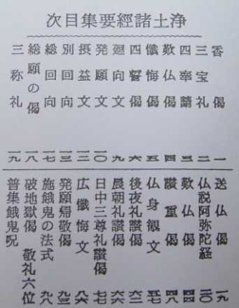 浄土諸經要集目次
香偈 一
三宝礼 一
四奉請
歎仏偈
懺悔偈
四誓偈
廻向文 九
発願文 九
摂益文 一〇
別回向
総回向 一七
総願の偈 一八
三称礼 一九
送仏偈 一九
仏説阿弥陀経
讃重偈
仏身観文
後夜礼讃偈
晨朝礼讃偈
日中三尊礼讃偈
広懺悔文
発願帰敬偈
施餓鬼の法式
破地獄偈 敬礼六位
普集餓鬼呪